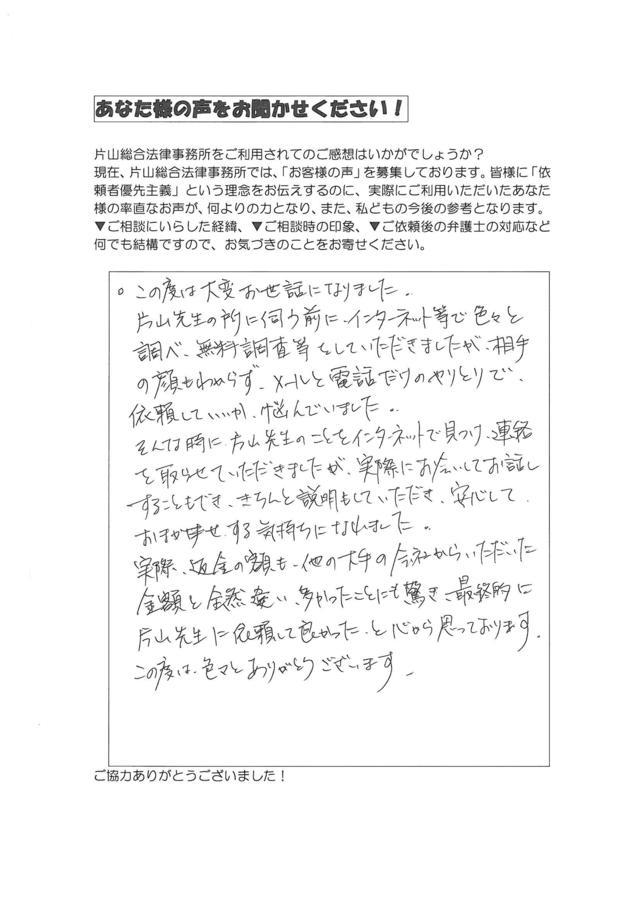 あなた様の声をお聞かせください！
片山総合法律事務所をご利用されてのご感想はいかがでしょうか？
現在、片山総合法律事務所では、「お客様の声」を募集しております。皆様に「依
頼者優先主義」という理念をお伝えするのに、実際にご利用いただいたあなた
様の率直なお声が、何よりの力となり、また、私どもの今後の参考となります。
▼ご相談にいらした経緯、▼ご相談時の印象、▼ご依頼後の弁護士の対応など
何でも結構ですので、お気づきのことをお寄せください。
。この度は大変お世話になりました。
片山先生の所に伺う前に、インターネット等で色々と
調べ、無料調査等をしていただきましたが、相手
の顔もわからず、メールと電話だけのやりとりで、
依頼していいか、悩んでいました。
そんな時に、片山先生のことをインターネットで見つけ、連絡
を取らせていただきましたが、実際にお会いしてお話し
することもでき、きちんと説明もしていただき、安心して
おまかせする気持ちになれました。
実際、返金の額も、他の大手の会社からいただいた
金額と全然違い、多かったことにも驚き、最終的に
片山先生に依頼して良かった、と心から思っております。
この度は、色々とありがとうございます。
ご協力ありがとうございました！